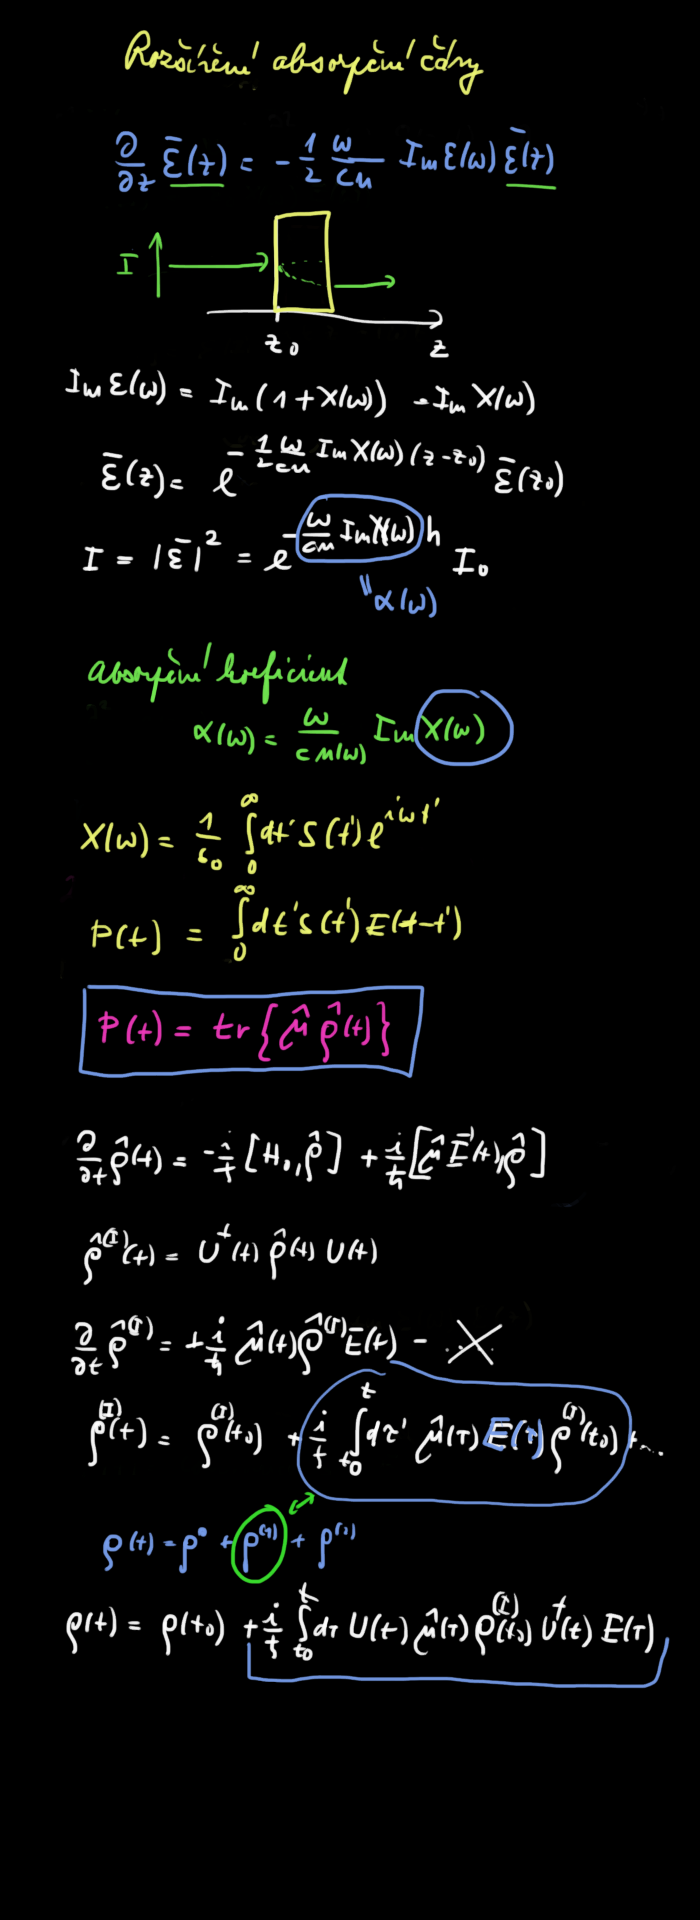 Rozšíření absorpční čáry
∂/∂z Ē(z) = - 1/2 ω/cn Im ε(ω) Ē(z)
I
z₀ z
Im ε(ω) = Im (1 + χ(ω)) - Im χ(ω)
Ē(z) = e^{- 1/2 ω/cn Im χ(ω) (z - z₀)} Ē(z₀)
I = |Ē|² = e^{- ω/cn Im χ(ω) h} I₀
" α(ω)
absorpční koeficient
α(ω) = ω/(c n(ω)) Im χ(ω)
χ(ω) = 1/ε₀ ∫₀^∞ dt' S(t') e^{iωt'}
P(t) = ∫₀^∞ dt' S(t') E(t-t')
P(t) = tr{μ̂ ρ̂(t)}
∂/∂t ρ̂(t) = - i/ħ [H₀, ρ̂] + i/ħ [μ̂ E⃗(t), ρ̂]
ρ̂^(I)(t) = U†(t) ρ̂(t) U(t)
∂/∂t ρ̂^(I) = + i/ħ μ̂(t) ρ̂^(I) E(t) -
ρ^(I)(t) = ρ^(I)(t₀) + i/ħ ∫_{t₀}^t dτ' μ̂(τ) E(τ) ρ^(I)(t₀) + ...
ρ(t) = ρ⁰ + ρ^(1) + ρ^(2)
ρ(t) = ρ(t₀) + i/ħ ∫_{t₀}^t dτ U(t) μ̂(τ) ρ^(I)(t₀) U†(t) E(τ)